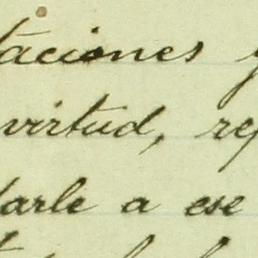 taciones y
virtud, rep
darle a ese